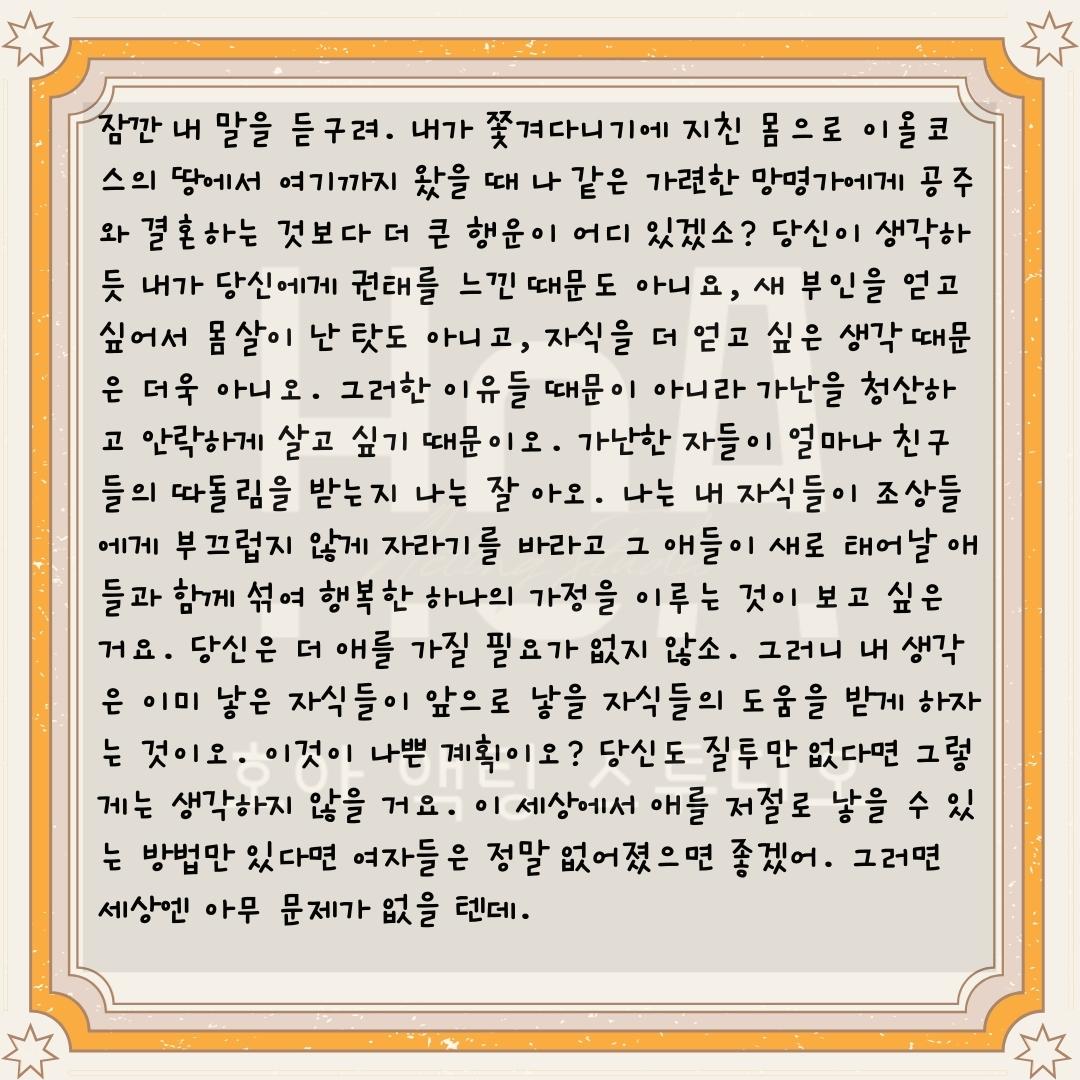 잠깐 내 말을 듣구려. 내가 쫓겨다니기에 지친 몸으로 이올코
스의 땅에서 여기까지 왔을 때 나 같은 가련한 망명가에게 공주
와 결혼하는 것보다 더 큰 행운이 어디 있겠소? 당신이 생각하
듯 내가 당신에게 권태를 느낀 때문도 아니요, 새 부인을 얻고
싶어서 몸살이 난 탓도 아니고, 자식을 더 얻고 싶은 생각 때문
은 더욱 아니오. 그러한 이유들 때문이 아니라 가난을 청산하
고 안락하게 살고 싶기 때문이오. 가난한 자들이 얼마나 친구
들의 따돌림을 받는지 나는 잘 아오. 나는 내 자식들이 조상들
에게 부끄럽지 않게 자라기를 바라고 그 애들이 새로 태어날 애
들과 함께 섞여 행복한 하나의 가정을 이루는 것이 보고 싶은
거요. 당신은 더 애를 가질 필요가 없지 않소. 그러니 내 생각
은 이미 낳은 자식들이 앞으로 낳을 자식들의 도움을 받게 하자
는 것이오. 이것이 나쁜 계획이오? 당신도 질투만 없다면 그렇
게는 생각하지 않을 거요. 이 세상에서 애를 저절로 낳을 수 있
는 방법만 있다면 여자들은 정말 없어졌으면 좋겠어. 그러면
세상엔 아무 문제가 없을 텐데.
HnA
Acting Studio
호아 액팅 스튜디오